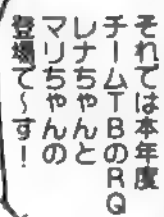 それでは本年度
チームTBのRQ
レナちゃんと
マリちゃんの
登場で〜す!